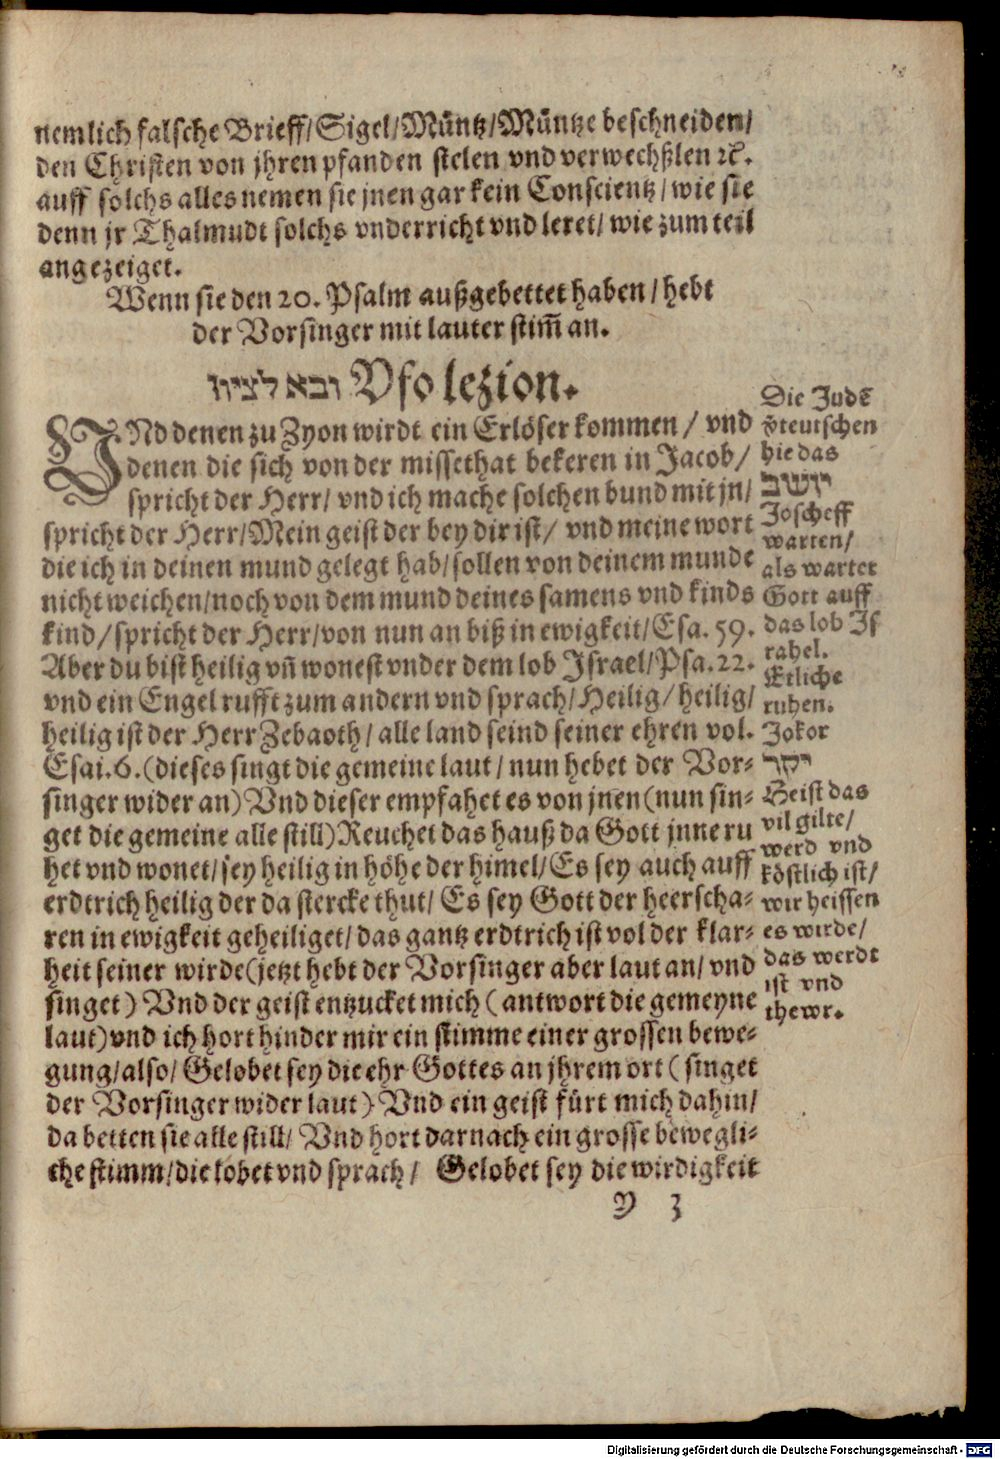 nemlich falsche Brieff/Sigel/Müntz/Müntze beschneiden/
den Christen von jhren pfanden stelen vnd verwechßlen ꝛc.
auff solchs alles nemen sie jnen gar kein Conscientz/wie sie
denn jr Thalmudt solchs vnderricht vnd leret/ wie zum teil
angezeiget.
Wenn sie den 20. Psalm außgebettet haben/hebt
der Vorsinger mit lauter stim̃ an.
ובא לציון Vfo lezion.
VNd denen zu Zyon wirdt ein Erlöser kommen/ vnd
denen die sich von der missethat bekeren in Jacob/
spricht der Herr/ vnd ich mache solchen bund mit jn/
spricht der Herr/Mein geist der bey dir ist/ vnd meine wort
die ich in deinen mund gelegt hab/sollen von deinem munde
nicht weichen/noch von dem mund deines samens vnd kinds
kind/spricht der Herr/von nun an biß in ewigkeit/Esa. 59.
Aber du bist heilig vn̄ wonest vnder dem lob Israel/Psa. 22.
vnd ein Engel rufft zum andern vnd sprach/Heilig/heilig/
heilig ist der Herr Zebaoth/alle land seind seiner ehren vol.
Esai. 6. (dieses singt die gemeine laut/nun hebet der Vor-
singer wider an) Vnd dieser empfahet es von jnen (nun sin-
get die gemeine alle still) Reuchet das hauß da Gott jnne ru
het vnd wonet/sey heilig in höhe der himel/Es sey auch auff
erdtrich heilig der da stercke thut/ Es sey Gott der heerscha-
ren in ewigkeit geheiliget/das gantz erdtrich ist vol der klar-
heit seiner wirde (jetzt hebt der Vorsinger aber laut an/ vnd
singet) Vnd der geist entzucket mich (antwort die gemeyne
laut) vnd ich hort hinder mir ein stimme einer grossen bewe-
gung/also/ Gelobet sey die ehr Gottes an jhrem ort (singet
der Vorsinger wider laut) Vnd ein geist fürt mich dahin/
da betten sie alle still/ Vnd hort darnach ein grosse bewegli-
che stimm/die lobet vnd sprach/ Gelobet sey die wirdigkeit
Y 3
Die Judē
vteutschen
hie das
יושב
Joscheff
warten/
als wartet
Gott auff
das lob Is
rahel.
Etliche
ruhen.
Jokor
יקר
Heist das
vil gilte/
werd vnd
köstlich ist/
wir heissen
es wirde/
das werdt
ist vnd
thewr.
Digitalisierung gefördert durch die Deutsche Forschungsgemeinschaft - DFG